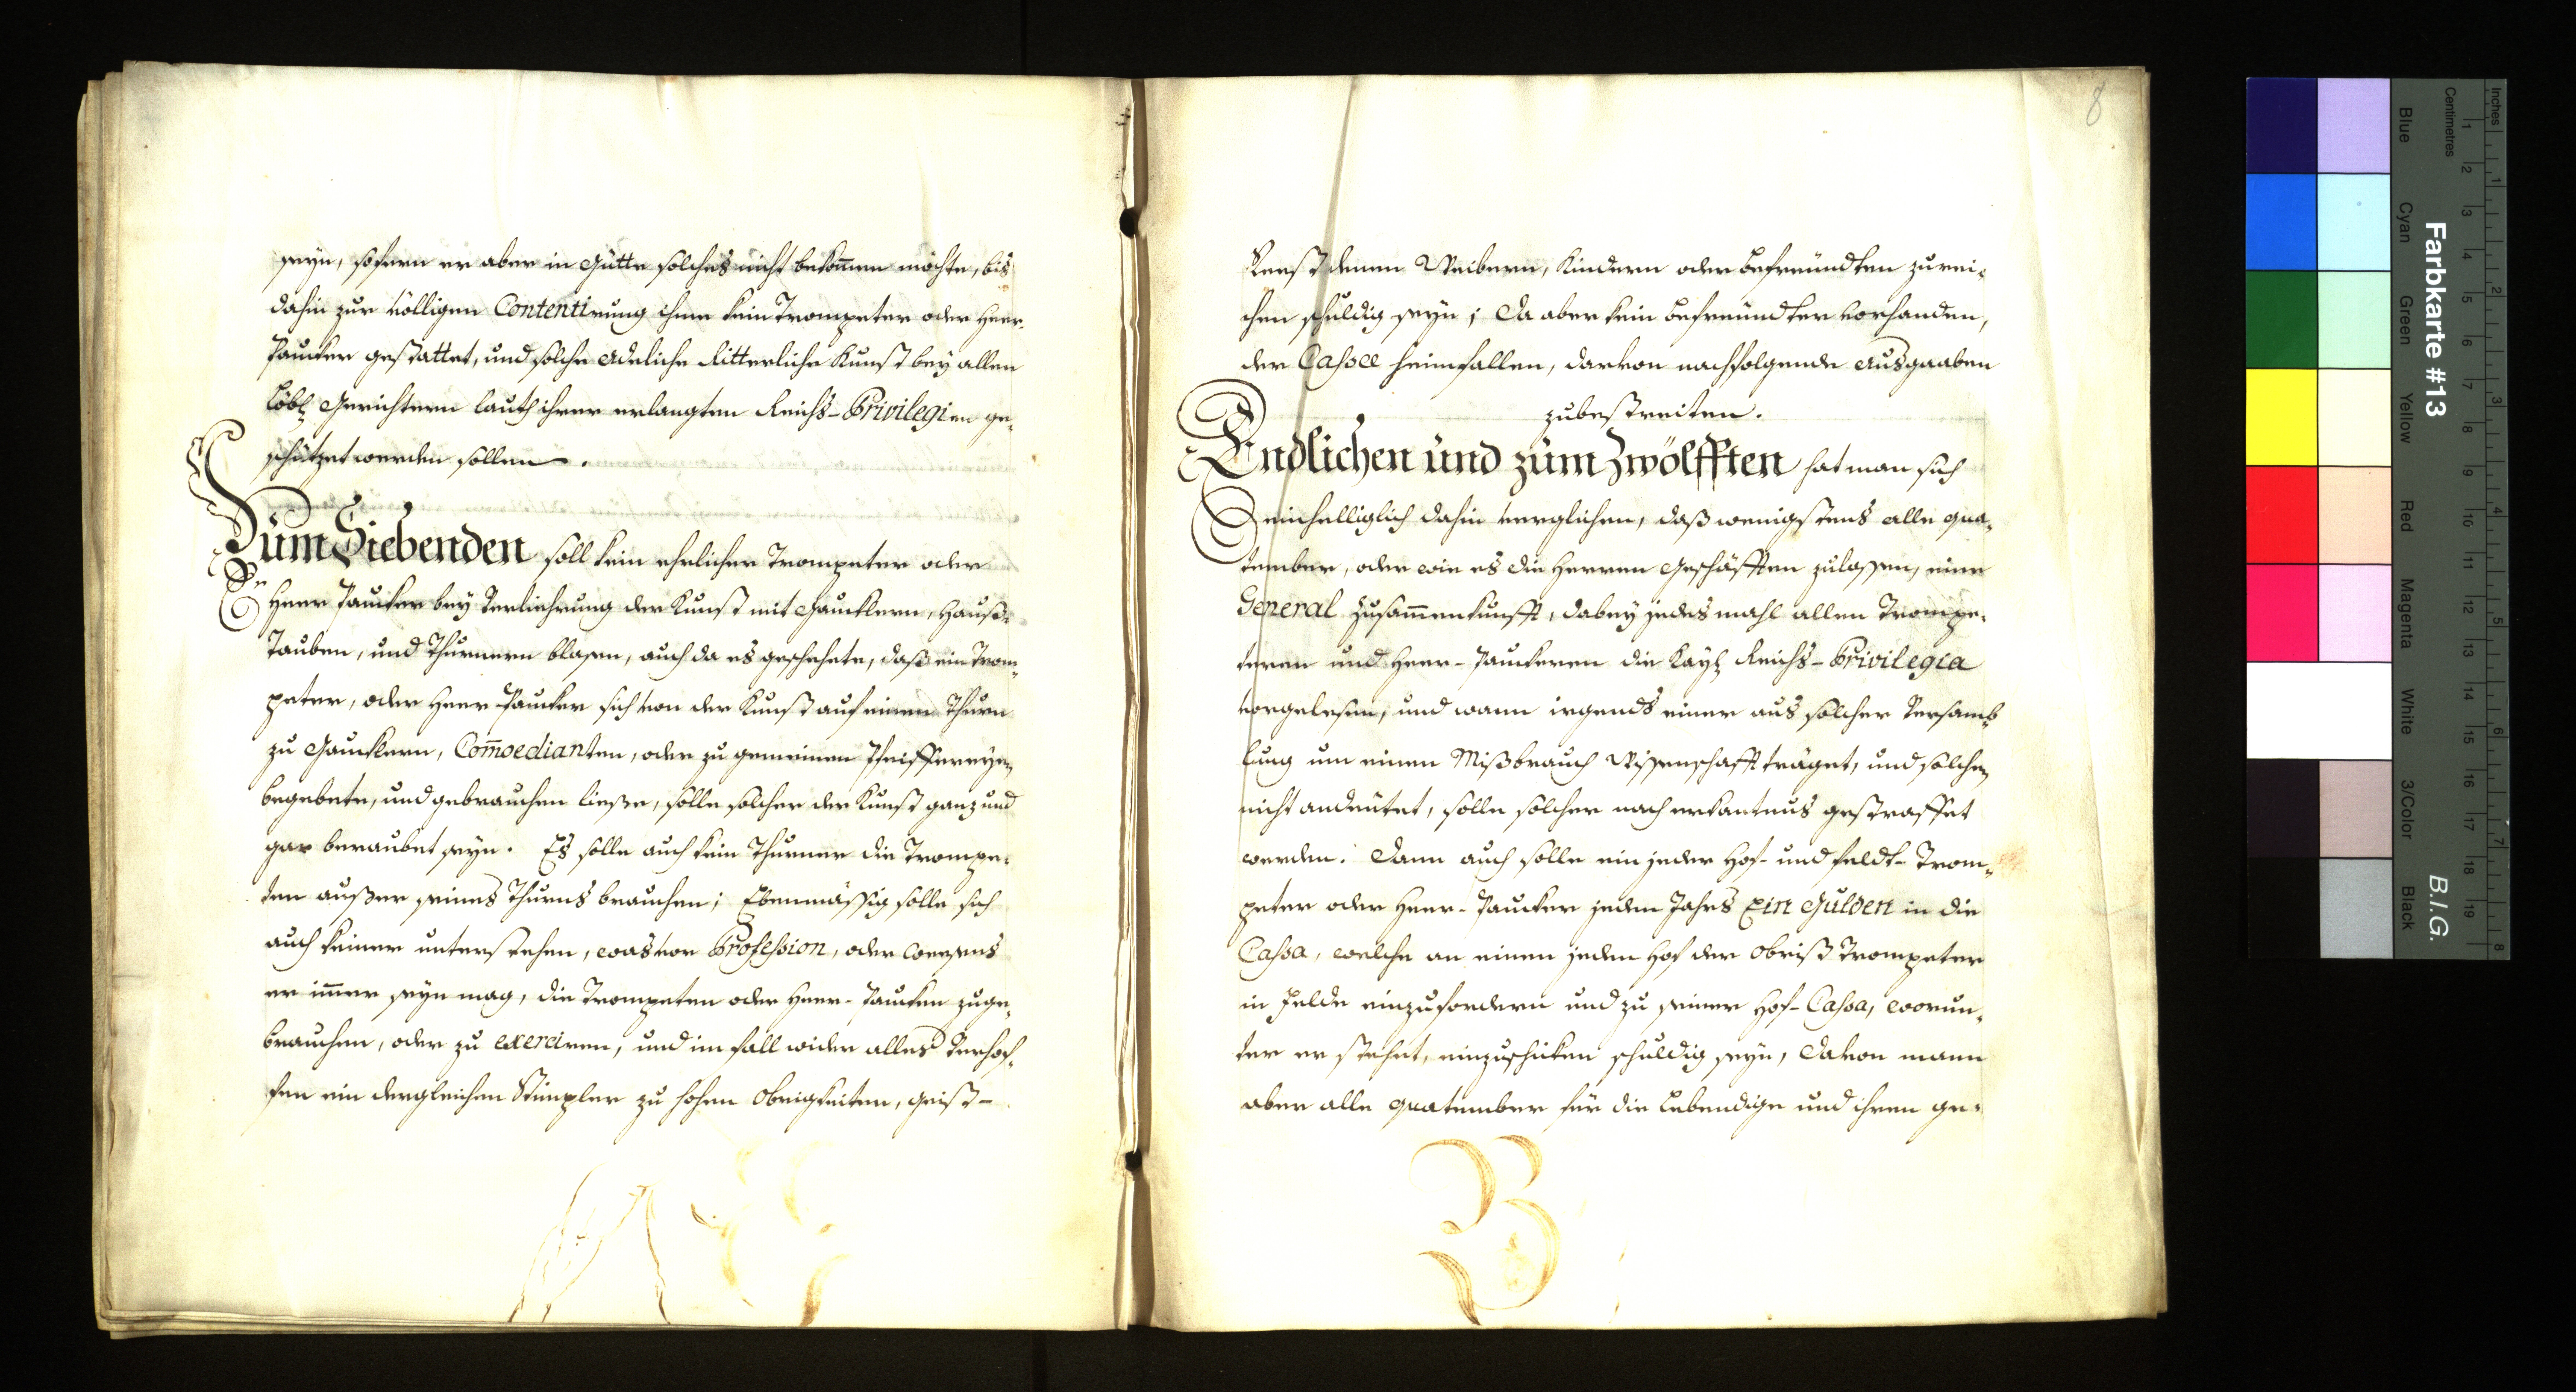 seyn, sofern er aber in Gütte solches nicht bekom̅en möchte, bis
dahin zur völligen Contentirung ihme kein Trompeter oder Heer-
Paucker gestattet, und solche Adeliche Ritterliche Kunst bey allen
Löbl. Gerichtern lauth ihrer erlangten Reichs-Privilegien ge-
schützet werden sollen.
Zum Siebenden soll kein ehrlicher Trompeter oder
Heer Paucker bey Verliehrung der Kunst mit Gaucklern, Hauß-
Tauben, und Thurnern blasen, auch da es geschehete, daß ein Trom-
peter, oder Heer-Paucker sich von der Kunst auf einen Thurn
zu Gaucklern, Com̅oedianten, oder zu gemeinen Pfeiffereyen
begebete, und gebrauchen ließe, solle solcher der Kunst ganz und
gar beraubet seyn. Es solle auch kein Thurner die Trompe-
ten außer seines Thurns brauchen; Ebenmässig solle sich
auch keiner unterstehen, was vor Profession, oder Weesens
er im̅er seyn mag, die Trompeten oder Heer-Paucken zuge-
brauchen, oder zu exerciren, und im fall wider alles Verhof-
fen ein dergleichen Stimpler zu hohen Obrigkeiten, Geist-
8
denen Weibern, Kindern oder Befreündten zurei-
chen schuldig seyn; Da aber kein Befreündter vorhanden,
der Cassae heimfallen, darvon nachfolgende Ausgaaben
zubestreiten.
Endlichen und zum Zwölfften hat man sich
einhelliglich dahin verglichen, daß wenigstens alle Qua-
tember, oder wie es die Herren Geschäfften zulassen, eine
General Zusam̅enkunfft, dabey jedes mahl allen Trompe-
teren und Heer-Pauckeren die Kayl. Reichs-Privilegia
vorgelesen, und wann irgends einer aus solcher Versamb-
lung um einen Mißbrauch Wissenschafft träget, und solchen
nicht andeütet, solle solcher nach erkantnus gestraffet
werden. Dann auch solle ein jeder Hof- und Feldt-Trom-
peter oder Heer-Paucker jeden Jahrs Ein Gulden in die
Cassa, welche an einen jeden Hof der Obrist Trompeter
in Felde einzufordern und zu seiner Hof-Cassa, worun-
ter er stehet, einzuschicken schuldig seyn, davon mann
aber alle Quatember für die Lebendige und ihren ge-
Farbkarte #13
B.I.G.
Inches
Centimetres
1 2 3 4 5 6 7 8 9 10 11 12 13 14 15 16 17 18 19
1 2 3 4 5 6 7 8
Blue
Cyan
Green
Yellow
Red
Magenta
White
3/Color
Black